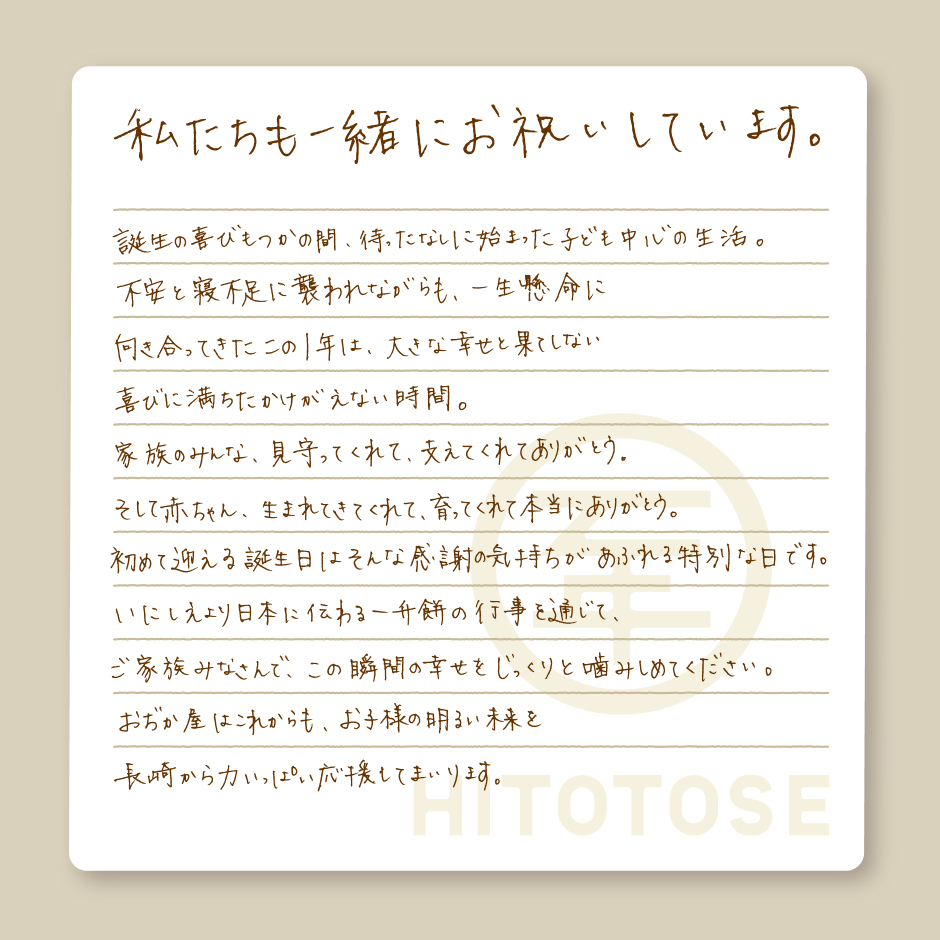 私たちも一緒にお祝いしています。
誕生の喜びもつかの間、待ったなしに始まった子ども中心の生活。
不安と寝不足に襲われながらも、一生懸命に
向き合ってきたこの1年は、大きな幸せと果てしない
喜びに満ちたかけがえない時間。
家族のみんな、見守ってくれて、支えてくれてありがとう。
そして赤ちゃん、生まれてきてくれて、育ってくれて本当にありがとう。
初めて迎える誕生日はそんな感謝の気持ちがあふれる特別な日です。
いにしえより日本に伝わる一升餅の行事を通じて、
ご家族みなさんで、この瞬間の幸せをじっくりと噛みしめてください。
おぢか屋はこれからも、お子様の明るい未来を
長崎から力いっぱい応援してまいります。
年
HITOTOSE